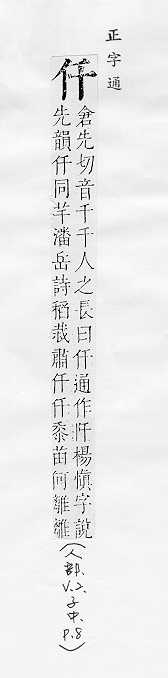 正字通
仟
倉先切音千千人之長曰仟通作阡楊愼字說
先韻仟同芊潘岳詩稻栽肅仟仟黍苗何離離
(人部, V.2, 子中, P.8)